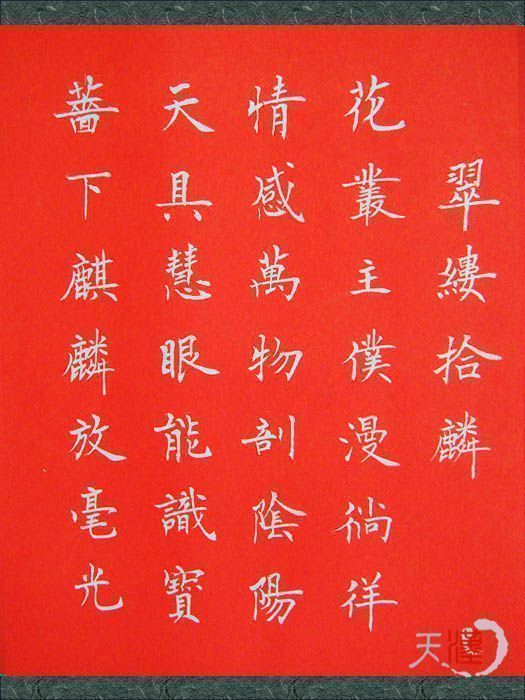 翠縷拾麟
花叢主僕漫徜徉
情感萬物剖陰陽
天具慧眼能識寶
薔下麒麟放毫光
天漢